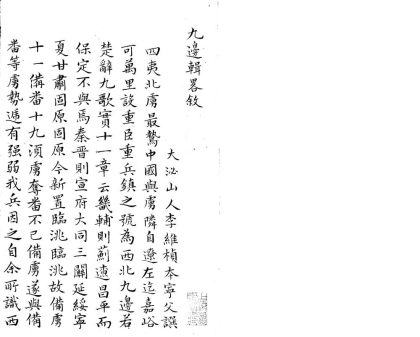 九邊輯畧敘
大泌山人李維楨本寧父譔
四夷北虜最鷙中國與虜隣自遼左迄嘉峪
可萬里設重臣重兵鎮之號為西北九邊若
楚辭九歌實十一章云畿輔則薊遼昌平而
保定不與焉秦晉則宣府大同三關延綏寧
夏甘肅固原固原今新置臨洮臨洮故備虜
十一備番十九湏虜奪番不已備虜遂與備
番等虜勢遞有强弱我兵因之自余所識西